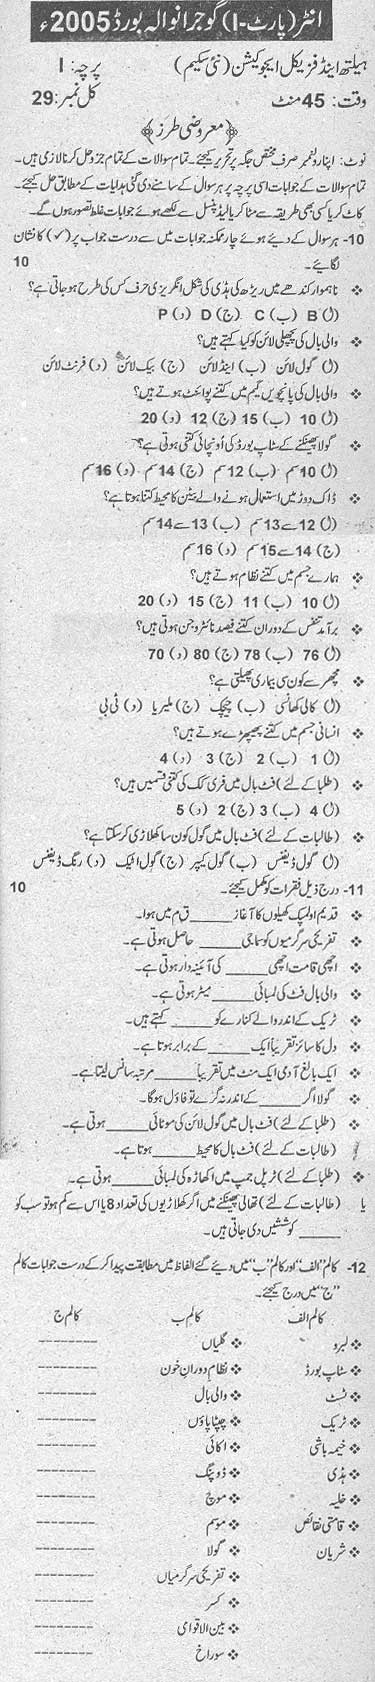 انٹر (پارٹ-I) گوجرانوالہ بورڈ 2005ء
ہیلتھ اینڈ فزیکل ایجوکیشن (نئی سکیم) پرچہ: I
وقت: 45 منٹ کل نمبر: 29
﴿معروضی طرز﴾
نوٹ: اپنا رولنمبر صرف مختص جگہ پر تحریر کیجئے۔ تمام سوالات کے تمام جزو حل کرنا لازمی ہیں۔
تمام سوالات کے جوابات اسی پرچہ پر ہر سوال کے سامنے دی گئی ہدایات کے مطابق حل کیجئے۔
کاٹ کر یا کسی بھی طریقہ سے مٹا کر یا لیڈ پنسل سے لکھے ہوئے جوابات غلط تصور ہوں گے۔
10- ہر سوال کے دیئے ہوئے چار ممکنہ جوابات میں سے درست جواب پر (✓) کا نشان
لگائیے۔ 10
❖ ناہموار کندھے میں ریڑھ کی ہڈی کی شکل انگریزی حرف کس کی طرح ہو جاتی ہے؟
(ا) B (ب) C (ج) D (د) P
❖ والی بال کی پچھلی لائن کو کیا کہتے ہیں؟
(ا) گول لائن (ب) اینڈ لائن (ج) بیک لائن (د) فرنٹ لائن
❖ والی بال کی پانچویں گیم میں کتنے پوائنٹ ہوتے ہیں؟
(ا) 10 (ب) 15 (ج) 12 (د) 20
❖ گولا پھینکنے کے سٹاپ بورڈ کی اونچائی کتنی ہوتی ہے؟
(ا) 10 سم (ب) 12 سم (ج) 14 سم (د) 16 سم
❖ ڈاک دوڑ میں استعمال ہونے والے بیٹن کا محیط کتنا ہوتا ہے؟
(ا) 12 سے 13 سم (ب) 13 سے 14 سم
(ج) 14 سے 15 سم (د) 16 سم
❖ ہمارے جسم میں کتنے نظام ہوتے ہیں؟
(ا) 10 (ب) 11 (ج) 15 (د) 20
❖ برآمد تنفس کے دوران کتنے فیصد نائٹروجن ہوتی ہیں؟
(ا) 76 (ب) 78 (ج) 80 (د) 70
❖ مچھر سے کون سی بیماری پھیلتی ہے؟
(ا) کالی کھانسی (ب) چیچک (ج) ملیریا (د) ٹی بی
❖ انسانی جسم میں کتنے پھیپھڑے ہوتے ہیں؟
(ا) 1 (ب) 2 (ج) 3 (د) 4
❖ (طلبا کے لئے) فٹ بال میں فری کک کی کتنی قسمیں ہیں؟
(ا) 4 (ب) 3 (ج) 2 (د) 5
❖ (طالبات کے لئے) نٹ بال میں گول کون سا کھلاڑی کر سکتا ہے؟
(ا) گول ڈیفنس (ب) گول کیپر (ج) گول اٹیک (د) رنگ ڈیفنس
11- درج ذیل فقرات کو مکمل کیجئے۔ 10
❖ قدیم اولمپک کھیلوں کا آغاز _____ ق م میں ہوا۔
❖ تفریحی سرگرمیوں کو سماجی _____ حاصل ہوتی ہے۔
❖ اچھی قامت اچھی _____ کی آئینہ دار ہوتی ہے۔
❖ والی بال نٹ کی لمبائی _____ میٹر ہوتی ہے۔
❖ ٹریک کے اندر والے کنارے کو _____ کہتے ہیں۔
❖ دل کا سائز تقریباً ایک _____ کے برابر ہوتا ہے۔
❖ ایک بالغ آدمی ایک منٹ میں تقریباً _____ مرتبہ سانس لیتا ہے۔
❖ گولا اگر _____ کے اندر نہ گرے تو فاؤل ہوگا۔
❖ (طلبا کے لئے) فٹ بال میں گول لائن کی موٹائی _____ ہوتی ہے۔
❖ (طالبات کے لئے) نٹ بال کا محیط _____ ہوتا ہے۔
❖ (طلبا کے لئے) ٹرپل جمپ میں اکھاڑہ کی لمبائی _____ ہوتی ہے۔
یا (طالبات کے لئے) تھالی پھینکنے میں اگر کھلاڑیوں کی تعداد 8 یا اس سے کم ہو تو سب کو
_____ کوششیں دی جاتی ہیں۔
12- کالم "الف" اور کالم "ب" میں دیئے گئے الفاظ میں مطابقت پیدا کر کے درست جوابات کالم
"ج" میں درج کیجئے۔
کالم الف کالم ب کالم ج
❖ لبرو ❖ گلیاں --------
❖ سٹاپ بورڈ ❖ نظام دوران خون --------
❖ ٹسٹ ❖ والی بال --------
❖ ٹریک ❖ چپٹا پاؤں --------
❖ خیمہ باشی ❖ اکائی --------
❖ ہڈی ❖ ڈوپنگ --------
❖ خلیہ ❖ موچ --------
❖ قامتی نقائص ❖ موسم --------
❖ شریان ❖ گولا --------
❖ تفریحی سرگرمیاں --------
❖ کسر --------
❖ بین الاقوامی --------
❖ سوراخ --------